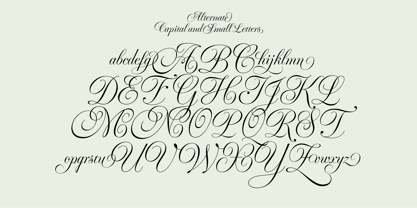 Alternate
Capital and Small Letters
abcdefgABChijklmn
DEFGHIJKL
MNOPQRST
opqrstuUVWXYZvwxyz